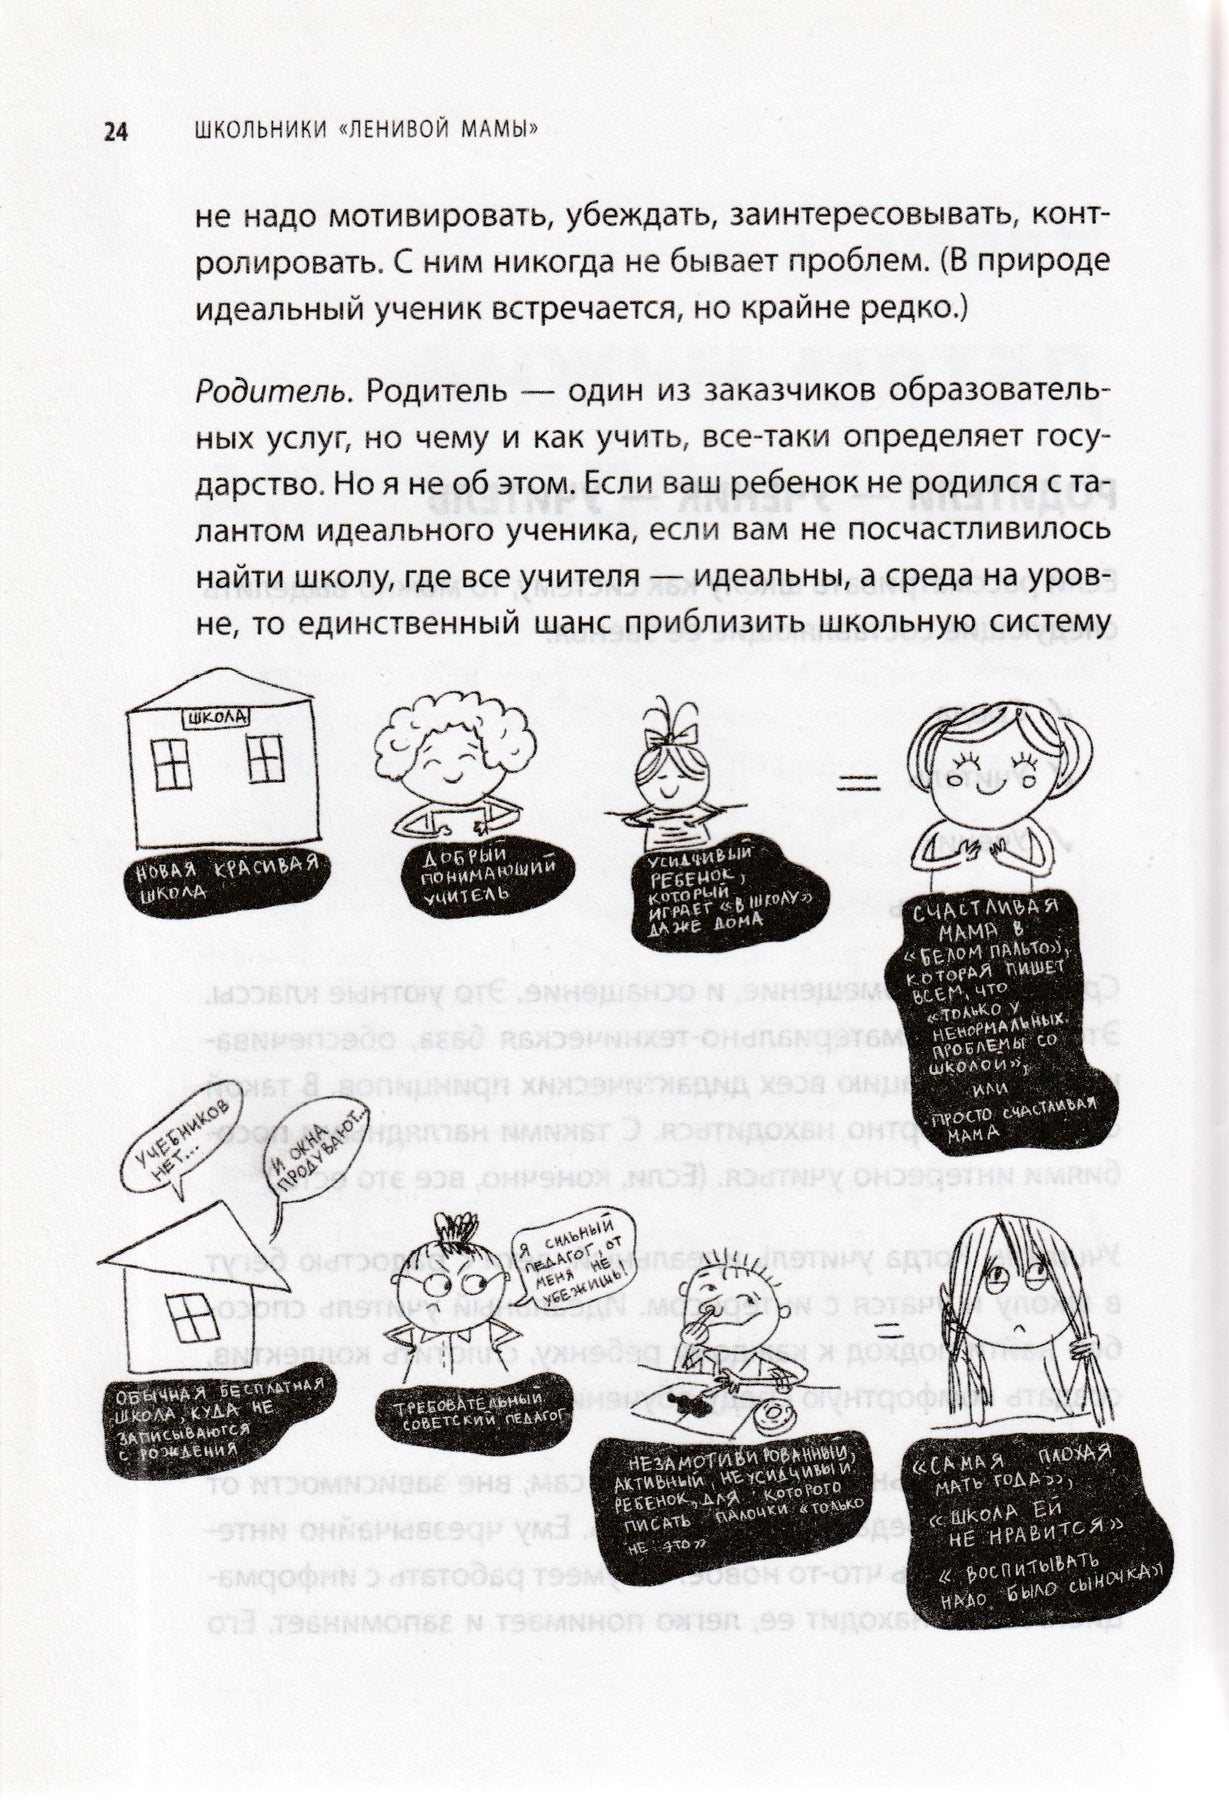 24
ШКОЛЬНИКИ «ЛЕНИВОЙ МАМЫ»
не надо мотивировать, убеждать, заинтересовывать, конт-
ролировать. С ним никогда не бывает проблем. (В природе
идеальный ученик встречается, но крайне редко.)
Родитель. Родитель — один из заказчиков образователь-
ных услуг, но чему и как учить, все-таки определяет госу-
дарство. Но я не об этом. Если ваш ребенок не родился с та-
лантом идеального ученика, если вам не посчастливилось
найти школу, где все учителя — идеальны, а среда на уров-
не, то единственный шанс приблизить школьную систему
ШКОЛА
=
НОВАЯ КРАСИВАЯ
ШКОЛА
ДОБРЫЙ
ПОНИМАЮЩИЙ
УЧИТЕЛЬ
УСИДЧИВЫЙ
РЕБЕНОК,
КОТОРЫЙ
ИГРАЕТ «В ШКОЛУ»
ДАЖЕ ДОМА
СЧАСТЛИВАЯ
МАМА В
«БЕЛОМ ПАЛЬТО»,
КОТОРАЯ ПИШЕТ
ВСЕМ, ЧТО
«ТОЛЬКО У
НЕНОРМАЛЬНЫХ
ПРОБЛЕМЫ СО
ШКОЛОЙ»,
ИЛИ
ПРОСТО СЧАСТЛИВАЯ
МАМА
УЧЕБНИКОВ
НЕТ...
И ОКНА
ПРОДУВАЮТ...
Я СИЛЬНЫЙ
ПЕДАГОГ, ОТ
МЕНЯ НЕ
УБЕЖИШЬ!
=
ОБЫЧНАЯ БЕСПЛАТНАЯ
ШКОЛА, КУДА НЕ
ЗАПИСЫВАЮТСЯ
С РОЖДЕНИЯ
ТРЕБОВАТЕЛЬНЫЙ
СОВЕТСКИЙ ПЕДАГОГ
НЕЗАМОТИВИРОВАННЫЙ,
АКТИВНЫЙ, НЕУСИДЧИВЫЙ
РЕБЕНОК, ДЛЯ КОТОРОГО
ПИСАТЬ ПАЛОЧКИ «ТОЛЬКО
НЕ ЭТО»
«САМАЯ ПЛОХАЯ
МАТЬ ГОДА»,
«ШКОЛА ЕЙ
НЕ НРАВИТСЯ»
«ВОСПИТЫВАТЬ
НАДО БЫЛО СЫНОЧКА»